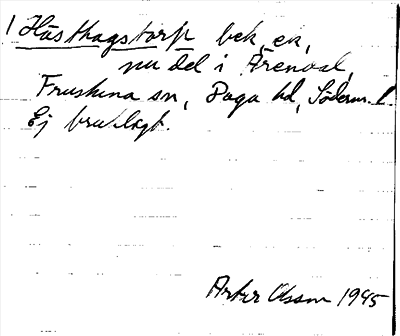 1 Hästhagstorp bek. en,
nu del i Årendal,
Fruskina sn, Daga hd, Söderm. l.
Ej brukligt.
Artur Olsson 1945